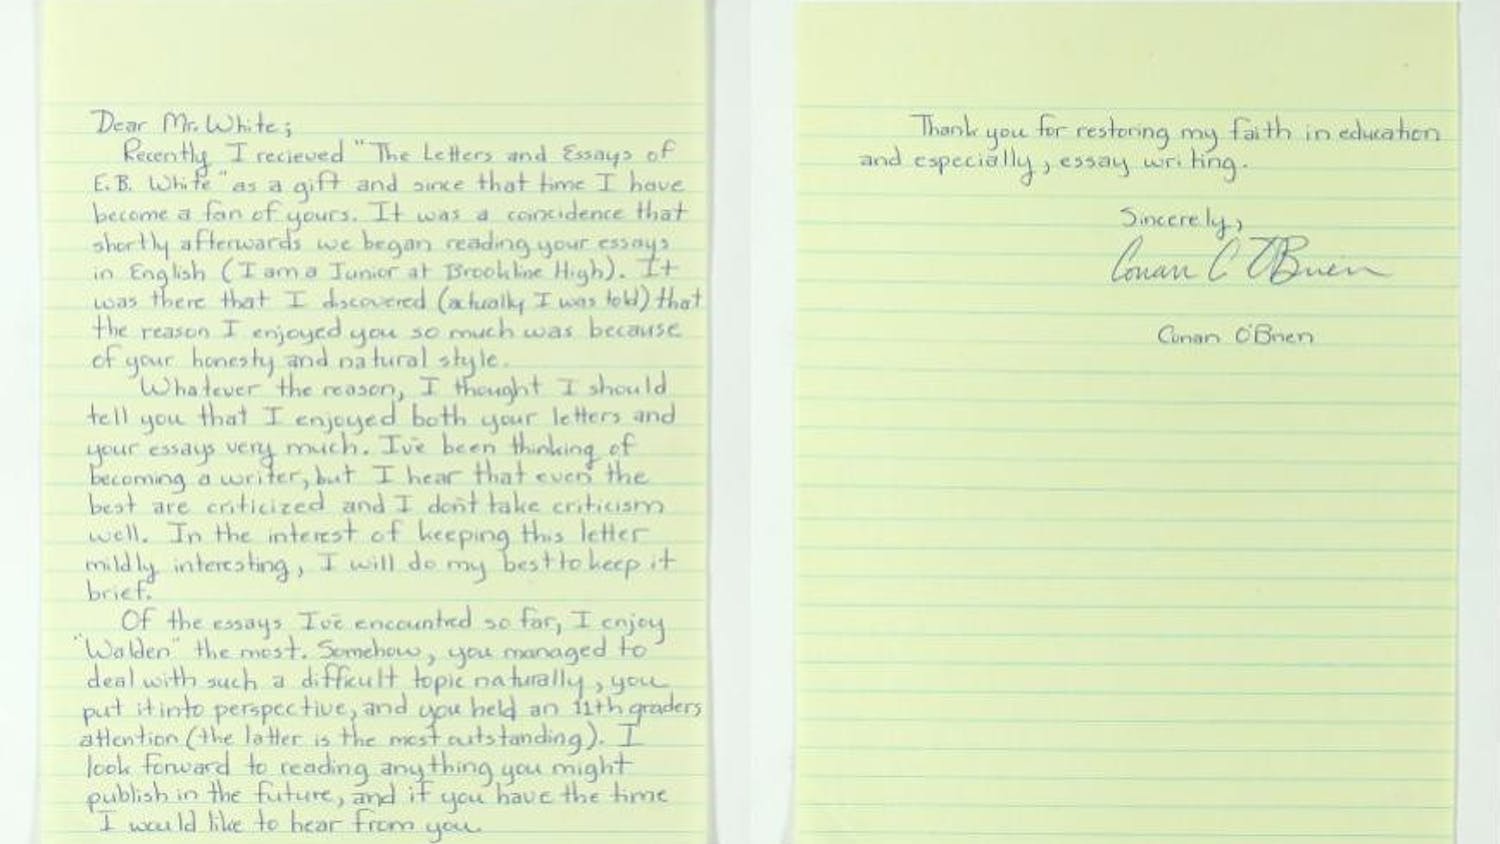 Dear Mr. White;
Recently I recieved "The Letters and Essays of
E.B. White" as a gift and since that time I have
become a fan of yours. It was a coincidence that
shortly afterwards we began reading your essays
in English (I am a Junior at Brookline High). It
was there that I discovered (actually I was told) that
the reason I enjoyed you so much was because
of your honesty and natural style.
Whatever the reason, I thought I should
tell you that I enjoyed both your letters and
your essays very much. I've been thinking of
becoming a writer, but I hear that even the
best are criticized and I don't take criticism
well. In the interest of keeping this letter
mildly interesting, I will do my best to keep it
brief.
Of the essays I've encounted so far, I enjoy
"Walden" the most. Somehow, you managed to
deal with such a difficult topic naturally, you
put it into perspective, and you held an 11th graders
attention (the latter is the most outstanding). I
look forward to reading anything you might
publish in the future, and if you have the time
I would like to hear from you.
Thank you for restoring my faith in education
and especially, essay writing.
Sincerely,
Conan C O'Brien
Conan O'Brien